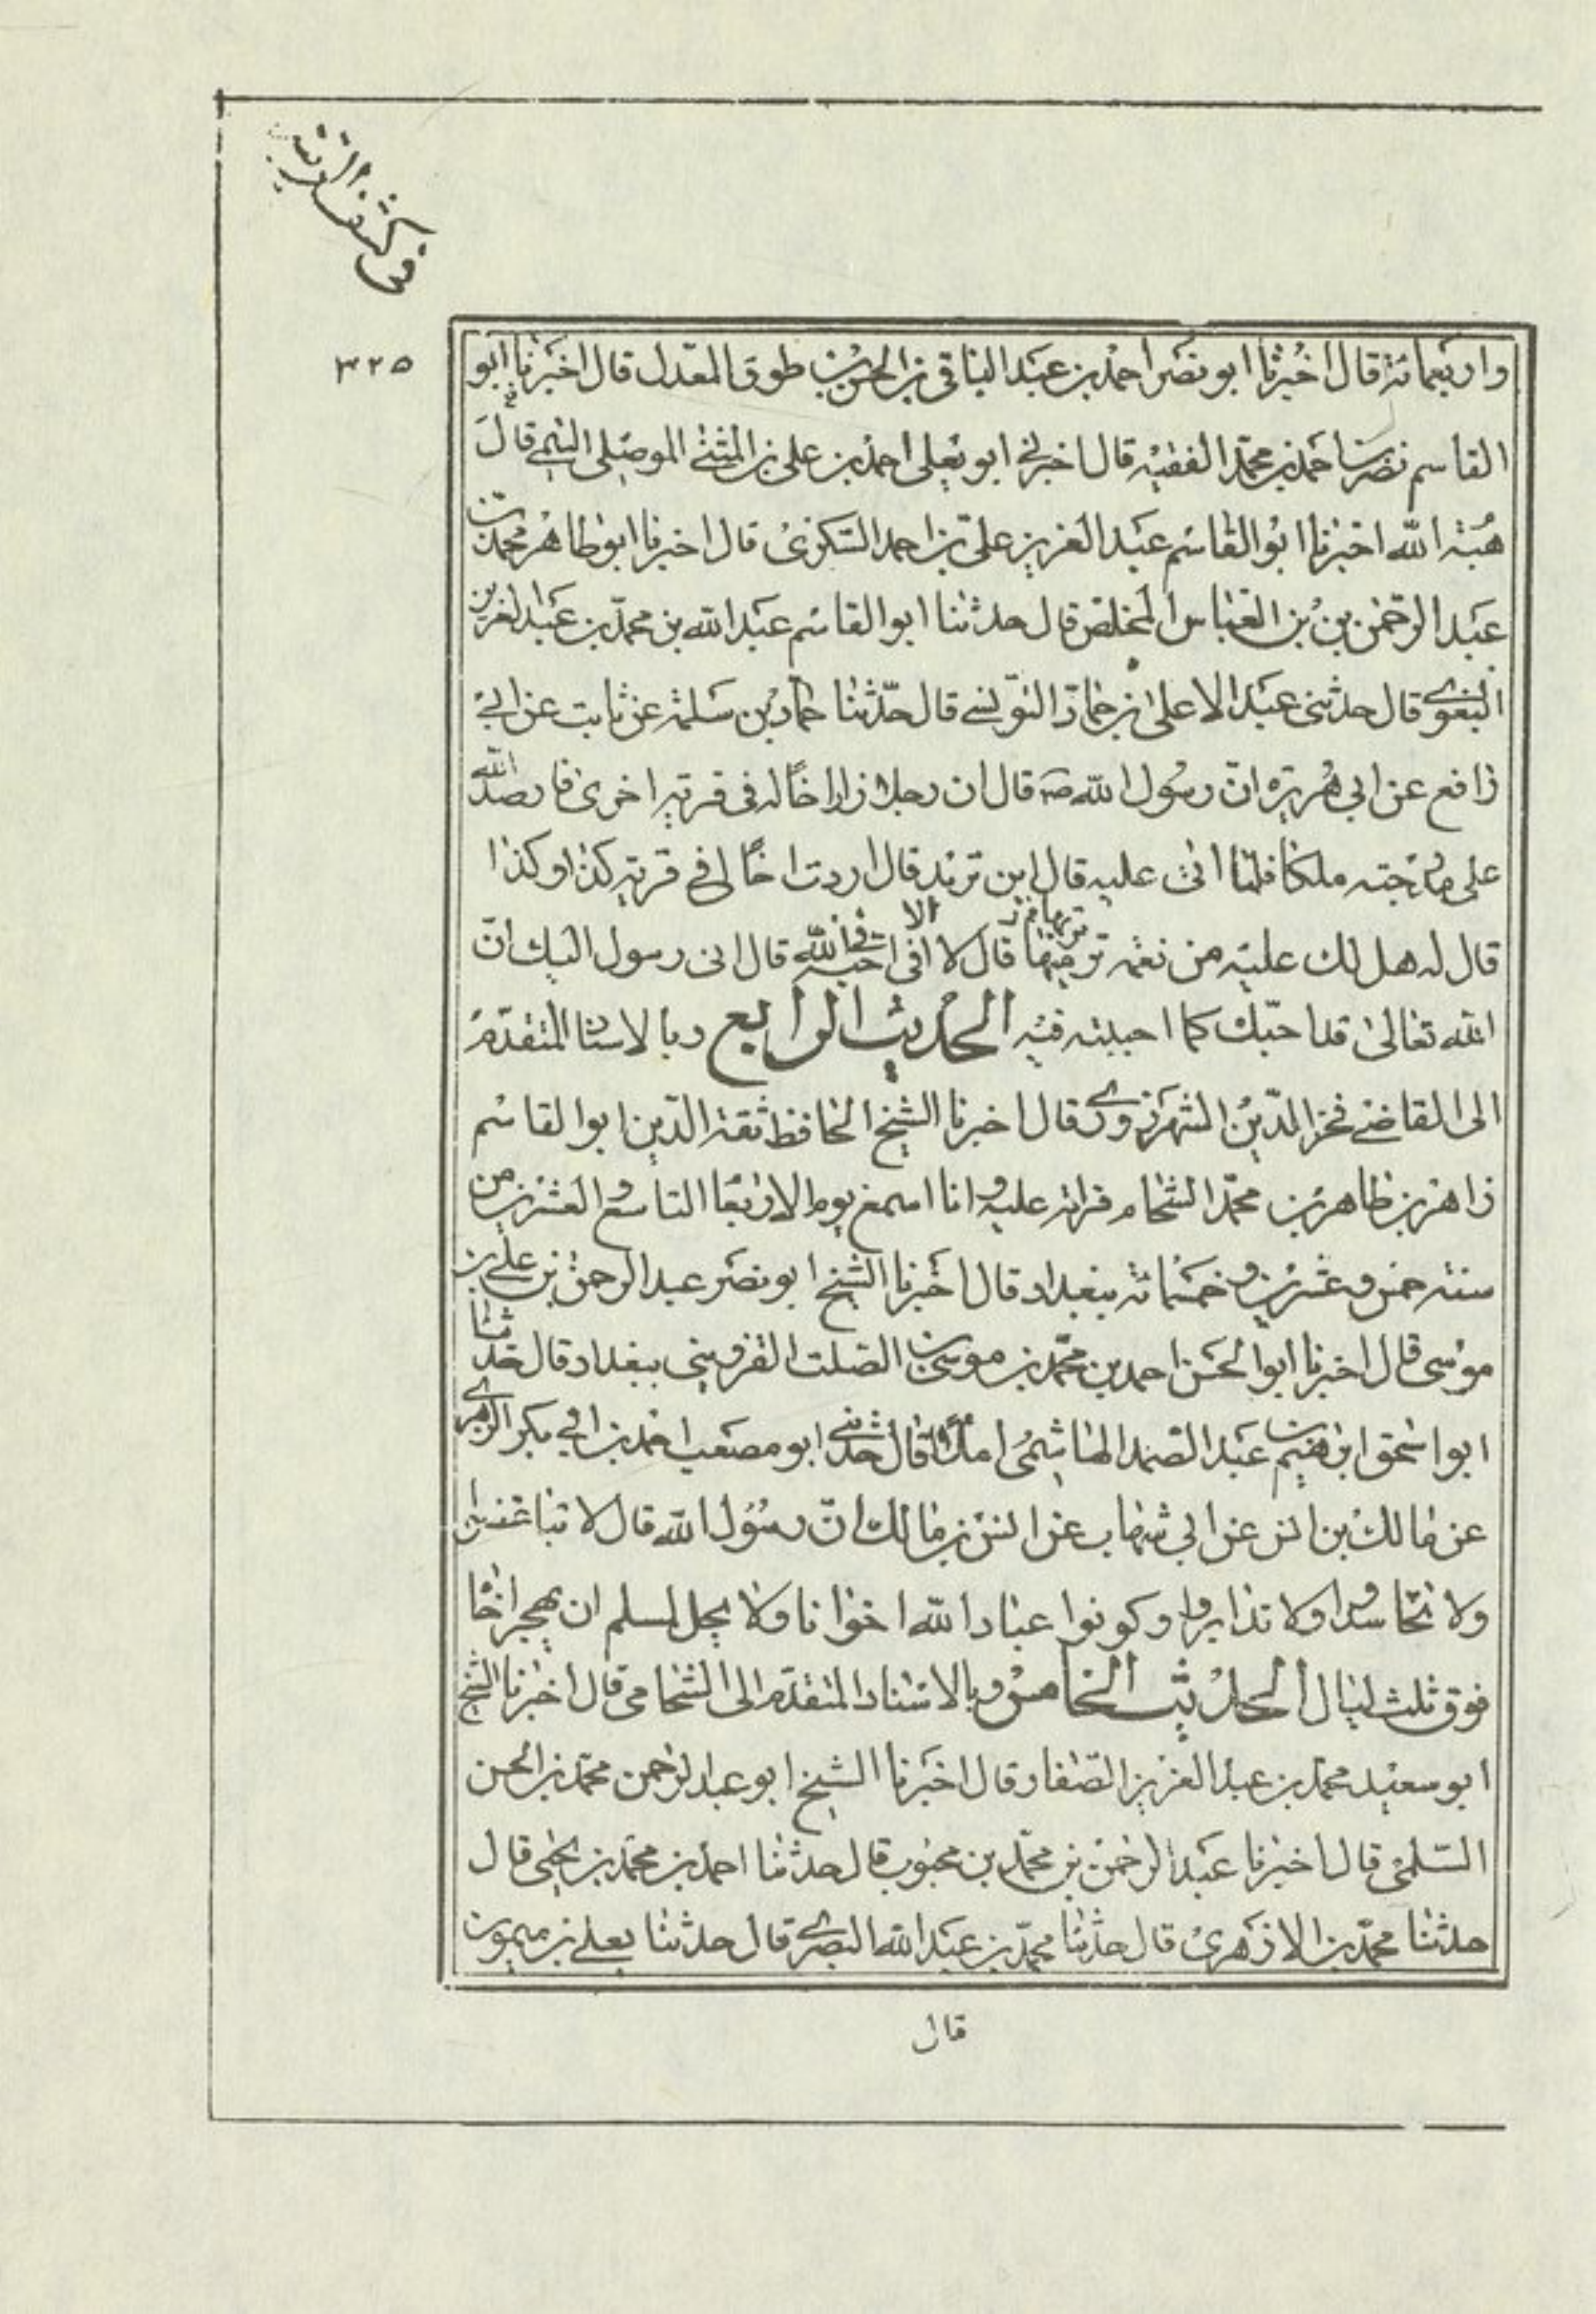 في كشف الريبة
٣٢٥
واربعمائة قال اخبرنا ابو نصر احمد بن عبد الباقي بن الحسن بن طوق المعدل قال اخبرنا ابو
القاسم نصر بن احمد بن محمد الفقيه قال اخبرني ابو يعلى احمد بن علي بن المثنى الموصلي قال
هبة الله اخبرنا ابو القاسم عبد العزيز علي بن احمد السكري قال اخبرنا ابو طاهر محمد بن
عبد الرحمن بن بن العباس المخلص قال حدثنا ابو القاسم عبد الله بن محمد بن عبد العزيز
البغوي قال حدثني عبد الاعلى بن حماد النرسي قال حدثنا حماد بن سلمة عن ثابت عن ابي
رافع عن ابي هريرة ان رسول الله ص قال ان رجلا زار اخا له في قرية اخرى فارصد الله
على مدرجته ملكا فلما اتى عليه قال اين تريد قال اردت اخا لي في قرية كذا وكذا
قال له هل لك عليه من نعمة تربها قال لا الا اني احبه في الله قال اني رسول اليك ان
الله تعالى قد احبك كما احببته فيه الحديث الرابع وبالاسناد المتقدم
الى القاضي فخر الدين الشهرزوري قال اخبرنا الشيخ الحافظ ثقة الدين ابو القاسم
زاهر بن طاهر بن محمد الشحام قراءة عليه وانا اسمع يوم الاربعا التاسع والعشرين من
سنة خمس وعشرين وخمسمائة ببغداد قال اخبرنا الشيخ ابو نصر عبد الرحمن بن علي بن
موسى قال اخبرنا ابو الحسن احمد بن محمد بن موسى بن الصلت القزويني ببغداد قال حدثنا
ابو اسحق ابرهيم بن عبد الصمد الهاشمي املاء قال حدثني ابو مصعب احمد بن ابي بكر الزهري
عن مالك بن انس عن ابي شهاب عن انس بن مالك ان رسول الله قال لا تباغضوا
ولا تحاسدوا ولا تدابروا وكونوا عباد الله اخوانا ولا يحل لمسلم ان يهجر اخاه
فوق ثلث ليال الحديث الخامس وبالاسناد المتقدم الى الشحامي قال اخبرنا الشيخ
ابو سعيد محمد بن عبد العزيز الصفار قال اخبرنا الشيخ ابو عبد الرحمن محمد بن الحسن
السلمي قال اخبرنا عبد الرحمن بن محمد بن محبوب قال حدثنا احمد بن محمد بن يحيى قال
حدثنا محمد بن الازهري قال حدثنا محمد بن عبد الله البصري قال حدثنا يعلى بن ميمون
قال